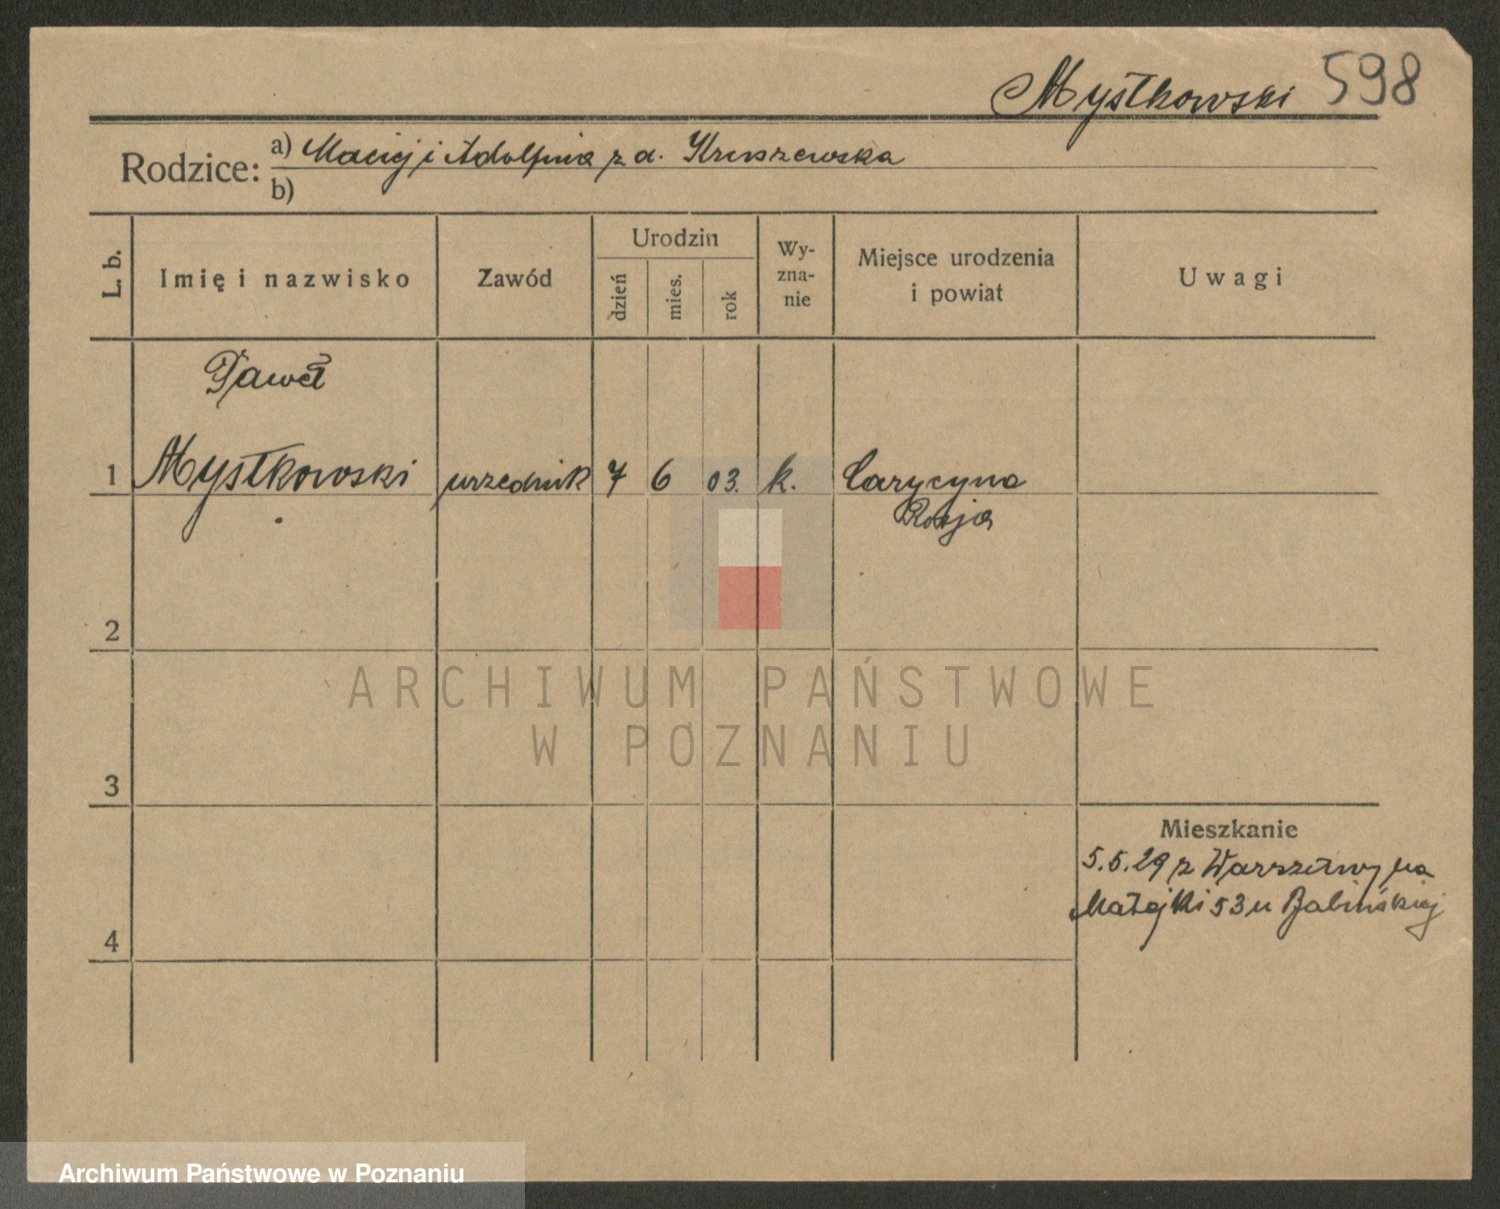 Mystkowski 598
Rodzice: a) Maciej i Adolfina z d. Kruszewska
b)
L. b. Imię i nazwisko Zawód Urodzin dzień mies. rok Wy-zna-nie Miejsce urodzenia i powiat Uwagi
Paweł
1 Mystkowski urzednik 7 6 03. k. Carycyno
Rosja
2
ARCHIWUM PAŃSTWOWE
W POZNANIU
3
Mieszkanie
5.5.29 z Warszawy na
Matejki 53 u Balińskiej
4
Archiwum Państwowe w Poznaniu